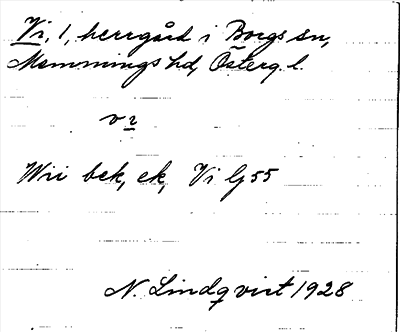 Vi, 1, herrgård i Borgs sn,
Memmings hd, Österg. l.
v ɩ
Wii bek, ek, Vi lj 55
N. Lindqvist 1928